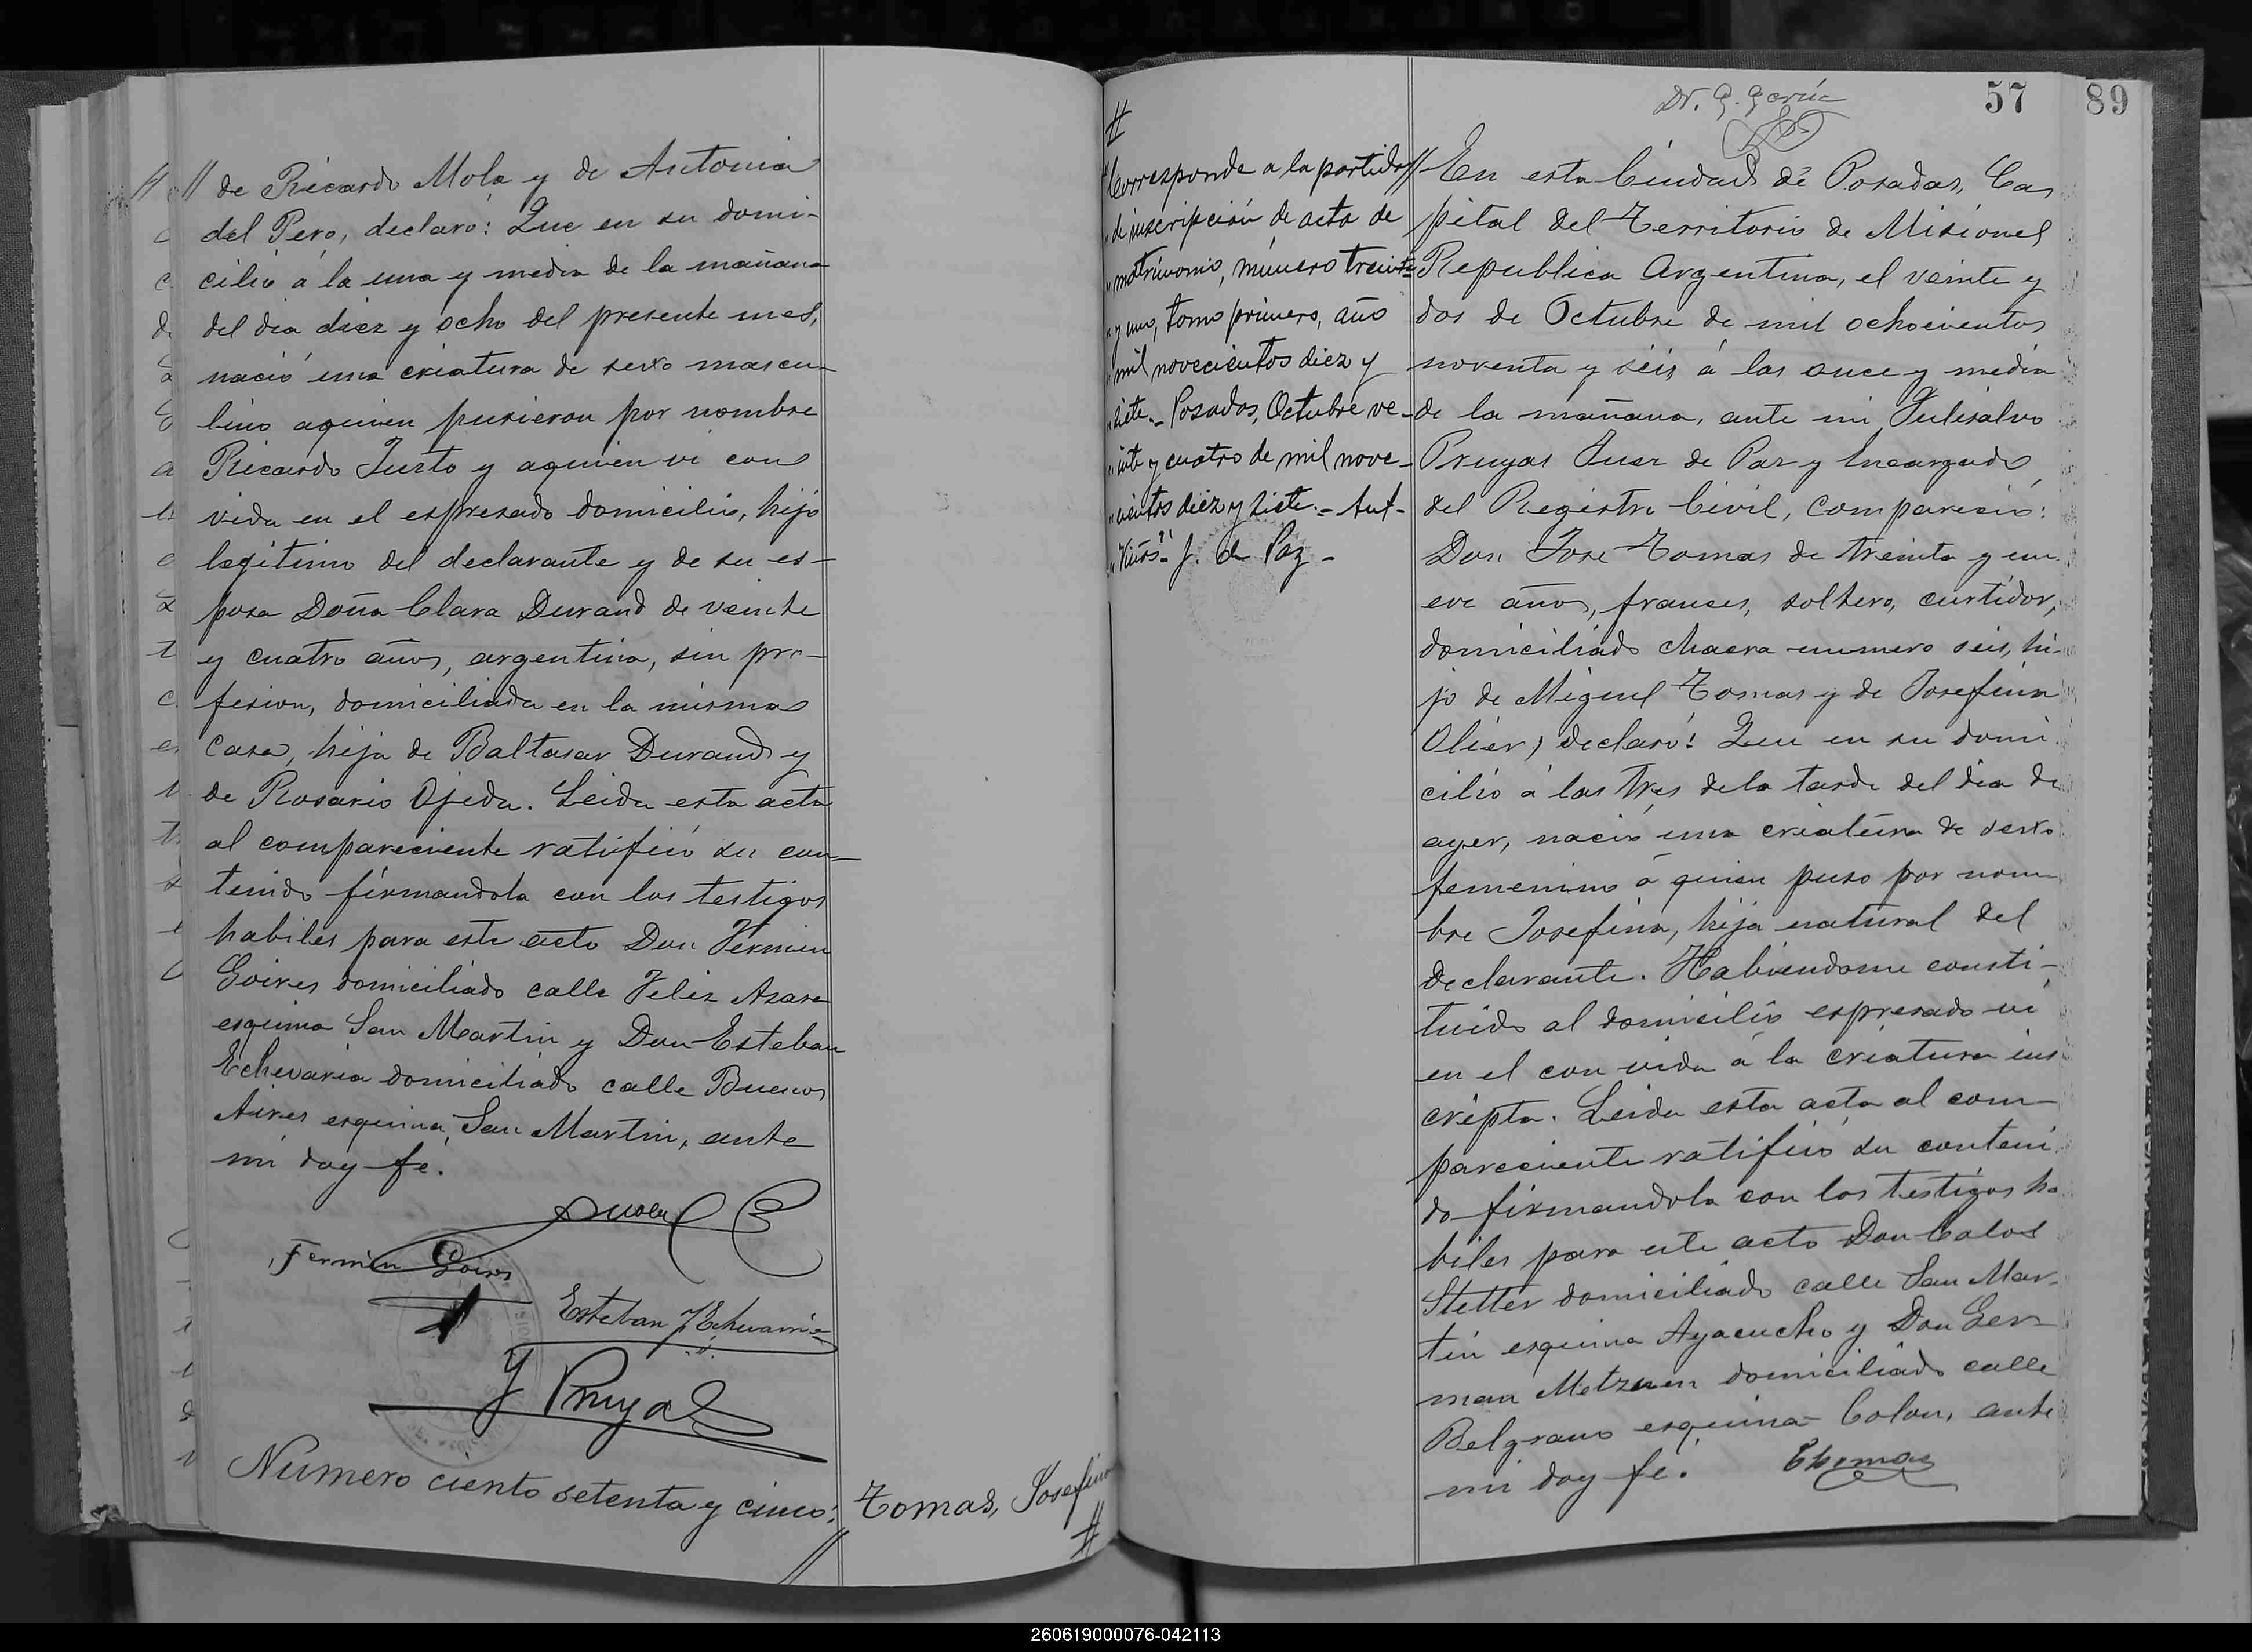 // de Ricardo Mola y de Antonia
del Pero, declaró: Que en su domi-
cilio á la una y media de la mañana
del dia diez y ocho del presente mes,
nació una criatura de sexo mascu-
lino aquien pusieron por nombre
Ricardo Justo y aquien vi con
vida en el espresado domicilio, hijo
legitimo del declarante y de su es-
posa Doña Clara Durand de veinte
y cuatro años, argentina, sin pro-
fesion, domiciliada en la misma
casa, hija de Baltasar Durand y
de Rosario Ojeda. Leida esta acta
al compareciente ratificó su con-
tenido firmandola con los testigos
habiles para este acto Don Fermin
Goires domiciliado calle Felis Azara
esquina San Martin y Don Esteban
Echevaria domiciliado calle Buenos
Aires esquina San Martin, ante
mi doy fé.
Fermin Goires
Esteban Echevarria
Pruyas
Numero ciento setenta y cinco:
//
Tomas, Josefina
#
#
"Corresponde a la partida
"de inscripción de acta de
"matrimonio, número treinta
"y uno, tomo primero, año
"mil novecientos diez y
"siete.- Posadas, Octubre ve-
"inte y cuatro de mil nove-
"cientos diez y siete.- Ant-
J. de Paz -
Dr. G. García
57
89
// En esta Ciudad de Posadas, Ca
pital del Territorio de Misiones
Republica Argentina, el veinte y
dos de Octubre de mil ochocientos
noventa y seis á las once y media
de la mañana, ante mi Fulisalvo
Pruyas Juez de Paz y Encargado
del Registro Civil, compareció:
Don Jose Tomas de treinta y nu
eve años, frances, soltero, curtidor,
domiciliado chacra numero seis, hi-
jo de Miguel Tomas y de Josefina
Olier, declaró: Que en su domi
cilio á las tres de la tarde del dia de
ayer, nació una criatura de sexo
femenino á quien puso por nom
bre Josefina, hija natural del
declarante. Habiendome consti-
tuido al domicilio espresado vi
en el con vida á la criatura ins
cripta. Leida esta acta al com-
pareciente ratificó su conteni
do firmandola con los testigos ha
biles para este acto Don Calos
Stetter domiciliado calle San Mar-
tin esquina Ayacucho y Don Ger-
man Metzen domiciliado calle
Belgrano esquina Colon, ante
mi doy fé.
Thomas
260619000076-042113